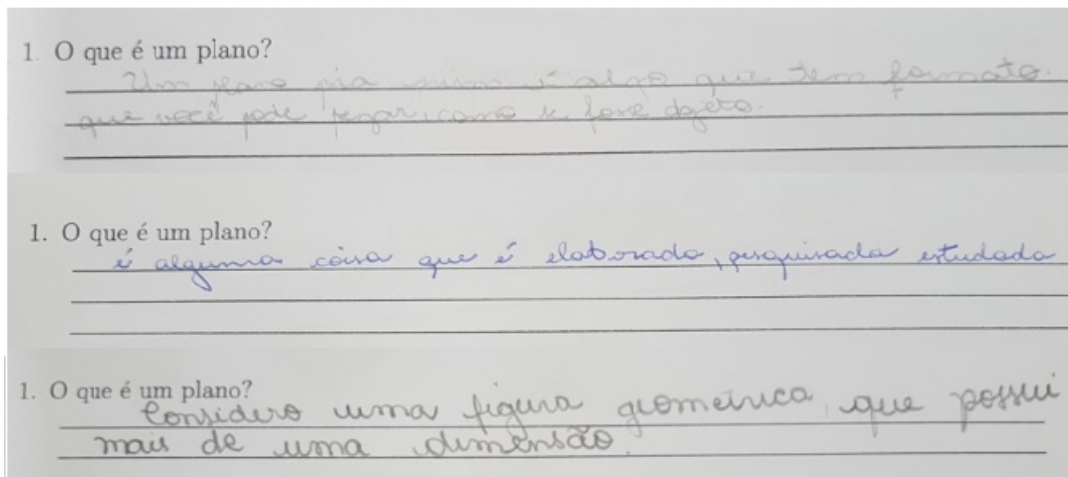 1. O que é um plano?
Um plano pra mim é algo que tem formato.
que você pode pegar, como se fosse objeto.
1. O que é um plano?
é alguma coisa que é elaborada, pesquisada estudada
1. O que é um plano?
Considero uma figura geometrica que possui
mais de uma dimensão.